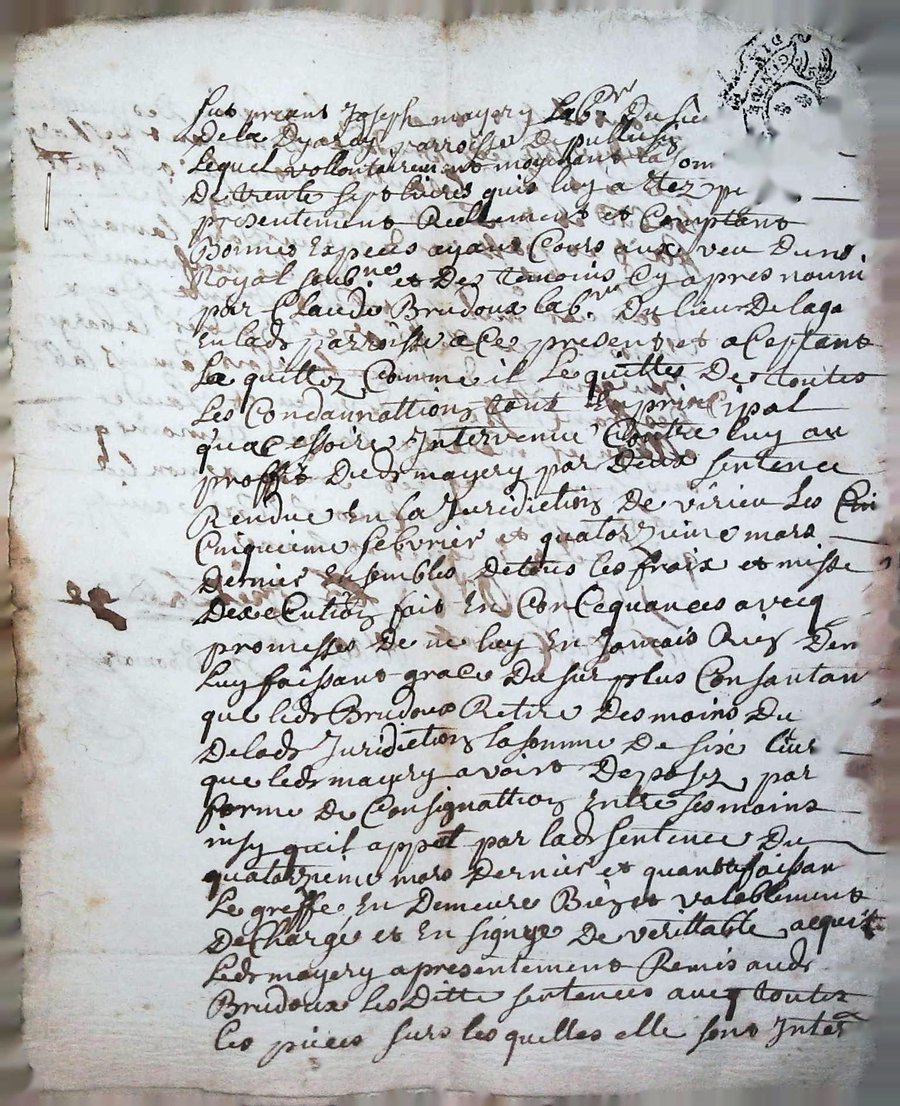 fut present Joseph mayery Lab.r Du lie
De la parroisse De
Lequel vollontairement moyenant la som
De trente sept livres quis luy a Etez
presentement Reellement et Comptant
Bonnes Especes ayant Cours aux veu Du no
Royal soub.né et Des temoins Cy apres nomm
par Claude Brudoux lab.r Du lieu De laga
En lade parroisse a Ce present et aCeptant
La quittez Comme il Le quitte De toutes
Les Condannattions tout En principal
qu'acessoire Intervenue Contre luy au
proffit Dudt mayery par Deux sentence
Rendue En la Juridiction De virieu Les
Cinquieme febvrier et quatorzieme mars
Dernier Ensembles De tous les fraix et misse
Dexecution fait En ConCequances avecq
promesses De ne luy En Jamais Rien Dem
Luy faissant grace Du surplus Consantan
que ledt Brudoux Retire Des mains Du
De ladt Juridiction la somme De six livr
que ledt mayery avoit Deposez par
forme De Consignattion Entre ses mains
insy quil appet par ladt sentence Du
quatorzieme mars Dernier et quant faisan
Le greffe En Demeure Bien et valablement
DeCharge et En signye De verittable acquit
Ledt mayery a presentement Remis audt
Brudoux les Ditte sentences avec toutes
les pieces surs les quelles elle sont Inter